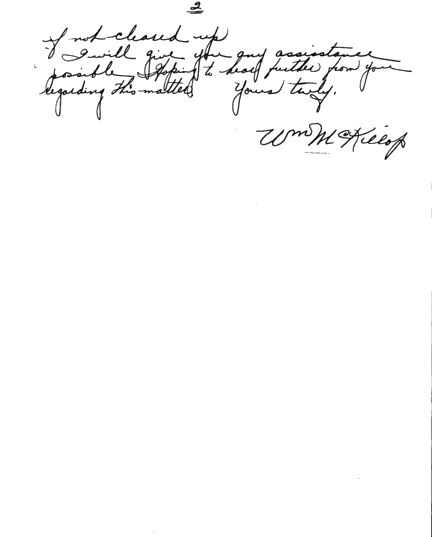 2
if not cleared up
I will give you any assisstance
possible, Hoping to hear further from you
regarding this matter, Yours truly.
Wm McKillop